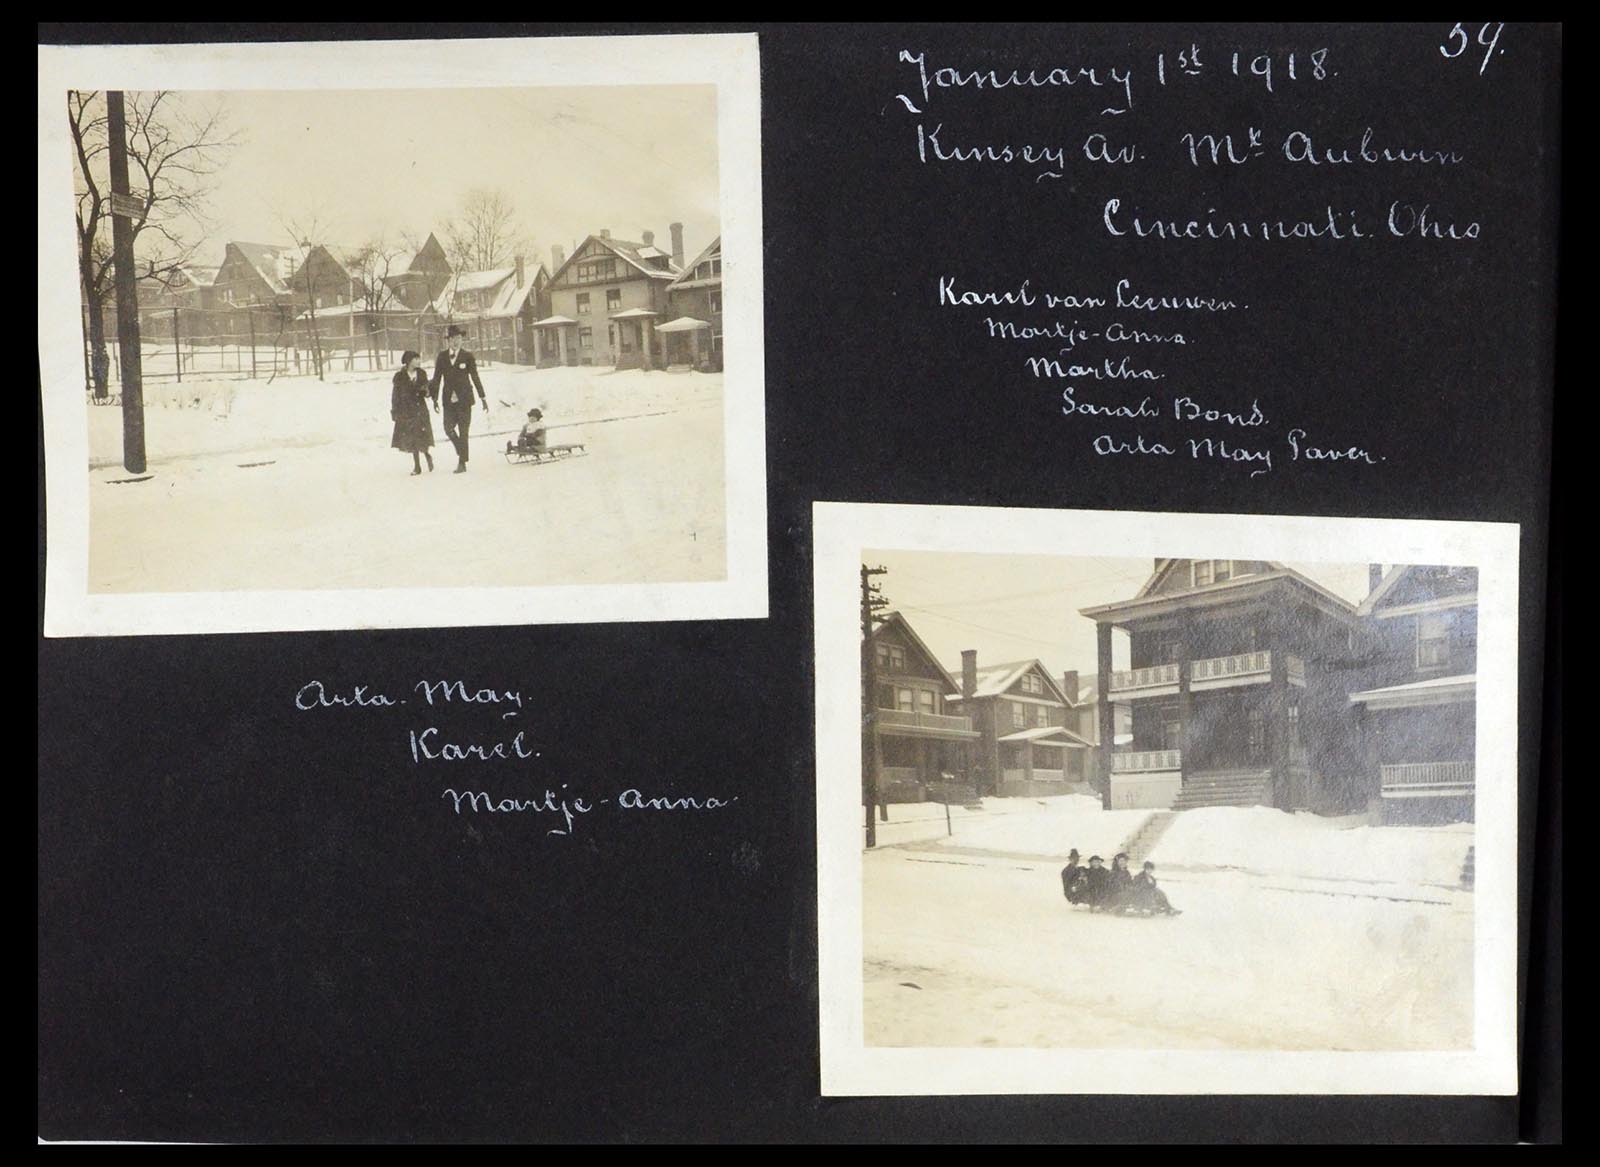 54.
January 1st 1918.
Kinsey Av. Mt Auburn
Cincinnati. Ohio
Karel van Leeuwen.
Martje-Anna.
Martha.
Sarah Bond.
Arta May Paver.
Arta. May.
Karel.
Martje-Anna.